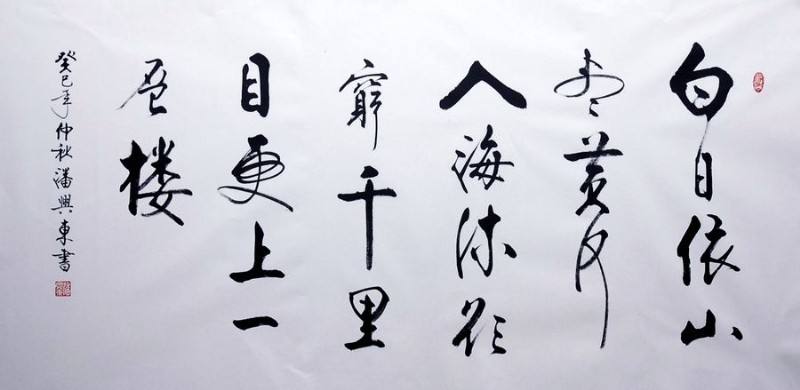 白日依山
尽黄河
入海流欲
穷千里
目更上一
层楼
癸巳年仲秋潘兴东书